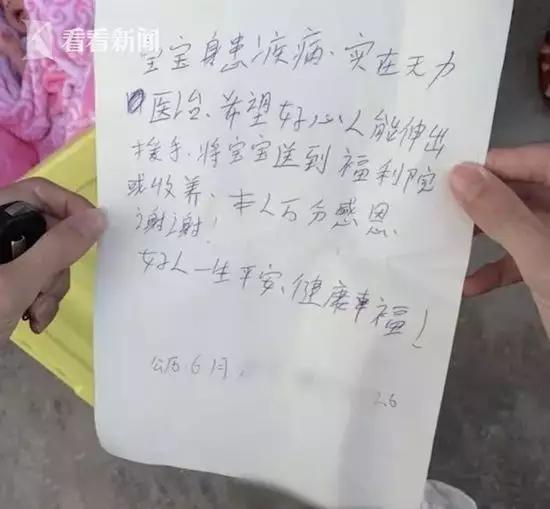 看看新闻
宝宝身患疾病、实在无力
医治、希望好心人能伸出
援手、将宝宝送到福利院
或收养、本人万分感恩
谢谢!
好人一生平安、健康幸福!
公历6月,
26